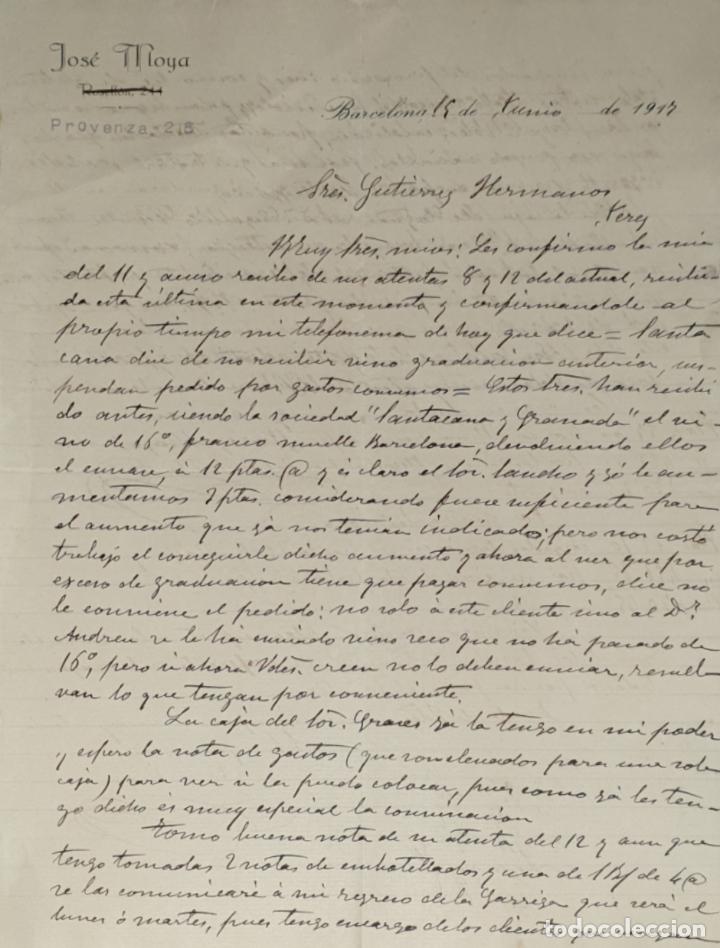 José Moya
Rosellón, 244
Provenza 28
Barcelona 15 de Junio de 1917
Sres. Gutierrez Hermanos
Xerez
Muy Sres. mios: Les confirmo la mia
del 11 y acuso recibo de sus atentas 8 y 12 del actual, recibi-
da esta última en este momento y confirmandole al
propio tiempo mi telefonema de hoy que dice = Santa
cana dice de no recibir vino graduacion anterior, sus-
pendan pedido por gastos consumos = Estos Sres. han recibi
do antes, siendo la sociedad "Santacana y Granada" el vi-
no de 16º, franco muelle Barcelona, devolviendo ellos
el envase, á 12 ptas. @ y es claro el Sor. Sancho y yó le au-
mentamos 2 ptas. considerando fuese suficiente para
el aumento que ya nos tenian indicado; pero nos costó
trabajo el conseguirle dicho aumento y ahora al ver que por
exceso de graduacion tiene que pagar consumos, dice no
le conviene el pedido: no solo á este cliente sino al Dr.
Andreu se le há enviado vino seco que no há pasado de
16º, pero si ahora Vdes. creen no lo deben enviar, resuel-
van lo que tengan por conveniente.
La caja del Sor. Graves ya la tengo en mi poder
y espero la nota de gastos (que son elevados para una sola
caja) para ver si la puedo colocar, pues como ya les ten-
go dicho és muy especial la consumacion
Tomo buena nota de su atenta del 12 y aun que
tengo tomadas 2 notas de embotellados y una de 1 Bf de 4 @
se las comunicaré á mi regreso de la Garriga que será el
lunes ó martes, pues tengo encargo de los clientes que
todocoleccion